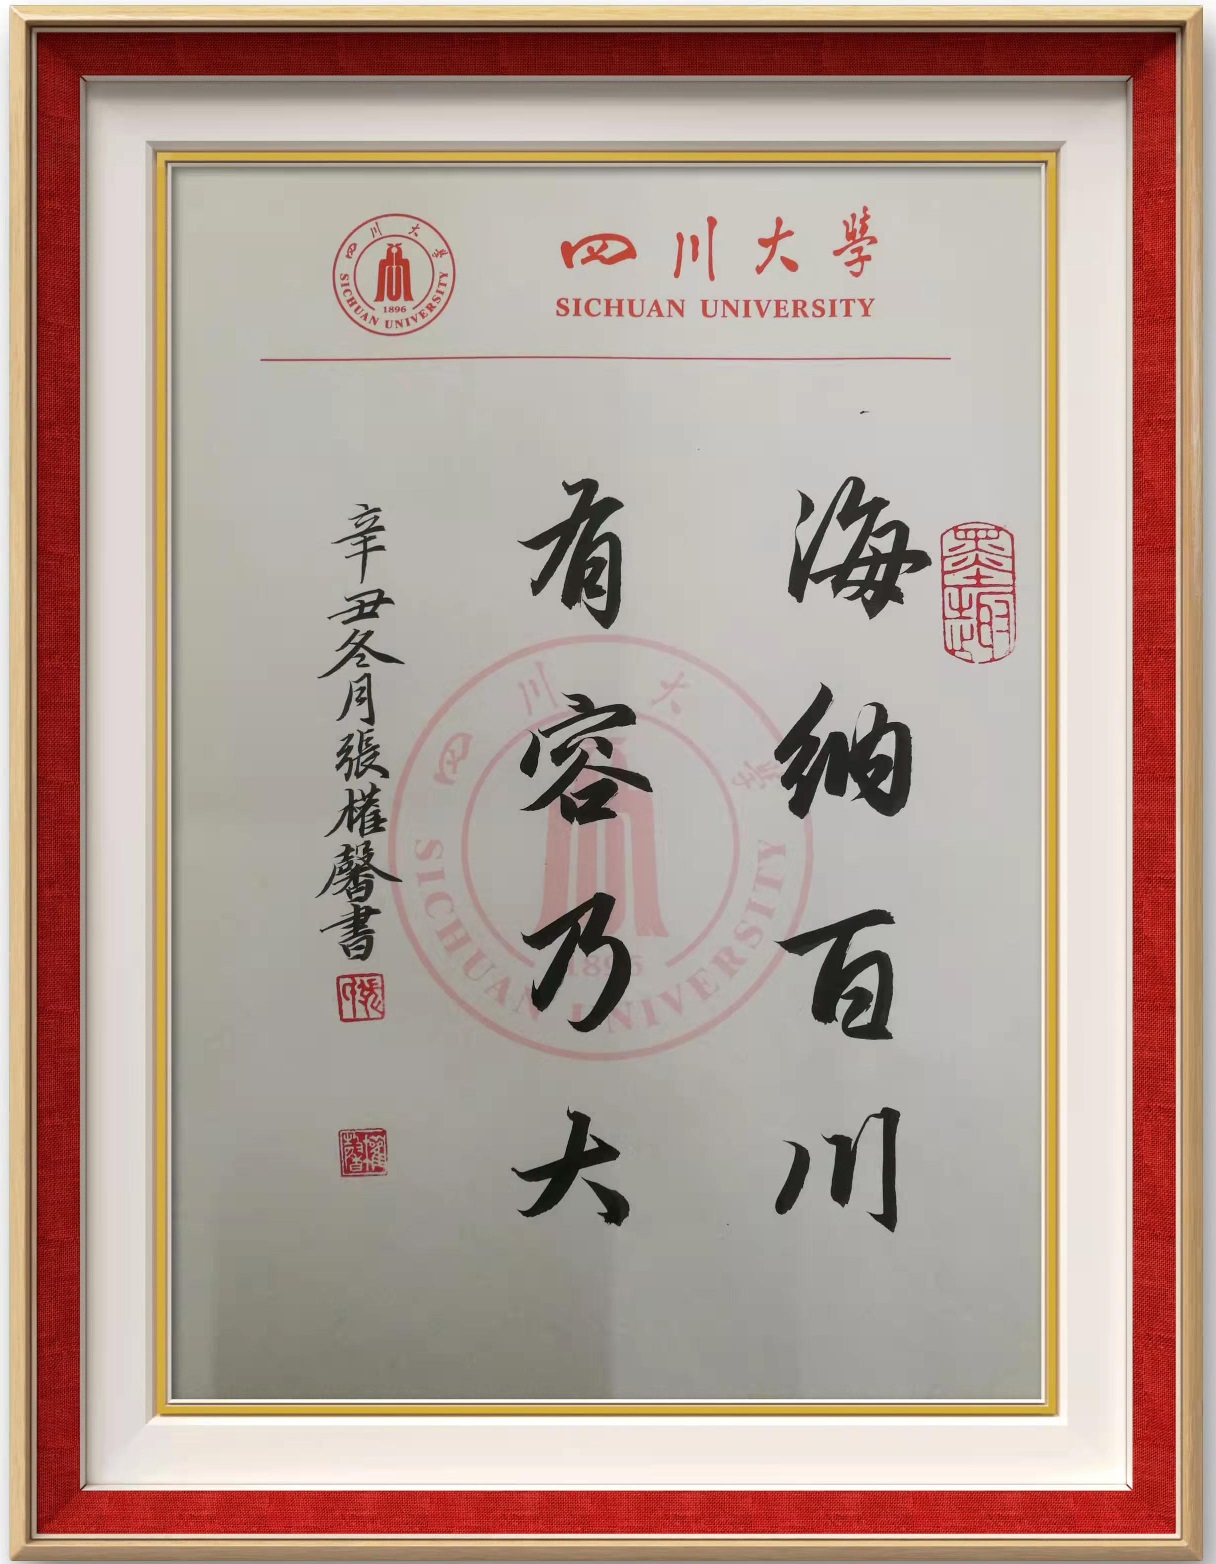 四川大學
SICHUAN UNIVERSITY
1896
四川大學
SICHUAN UNIVERSITY
海纳百川
有容乃大
辛丑冬月張權馨書
墨趣
四川大學
SICHUAN UNIVERSITY
1896